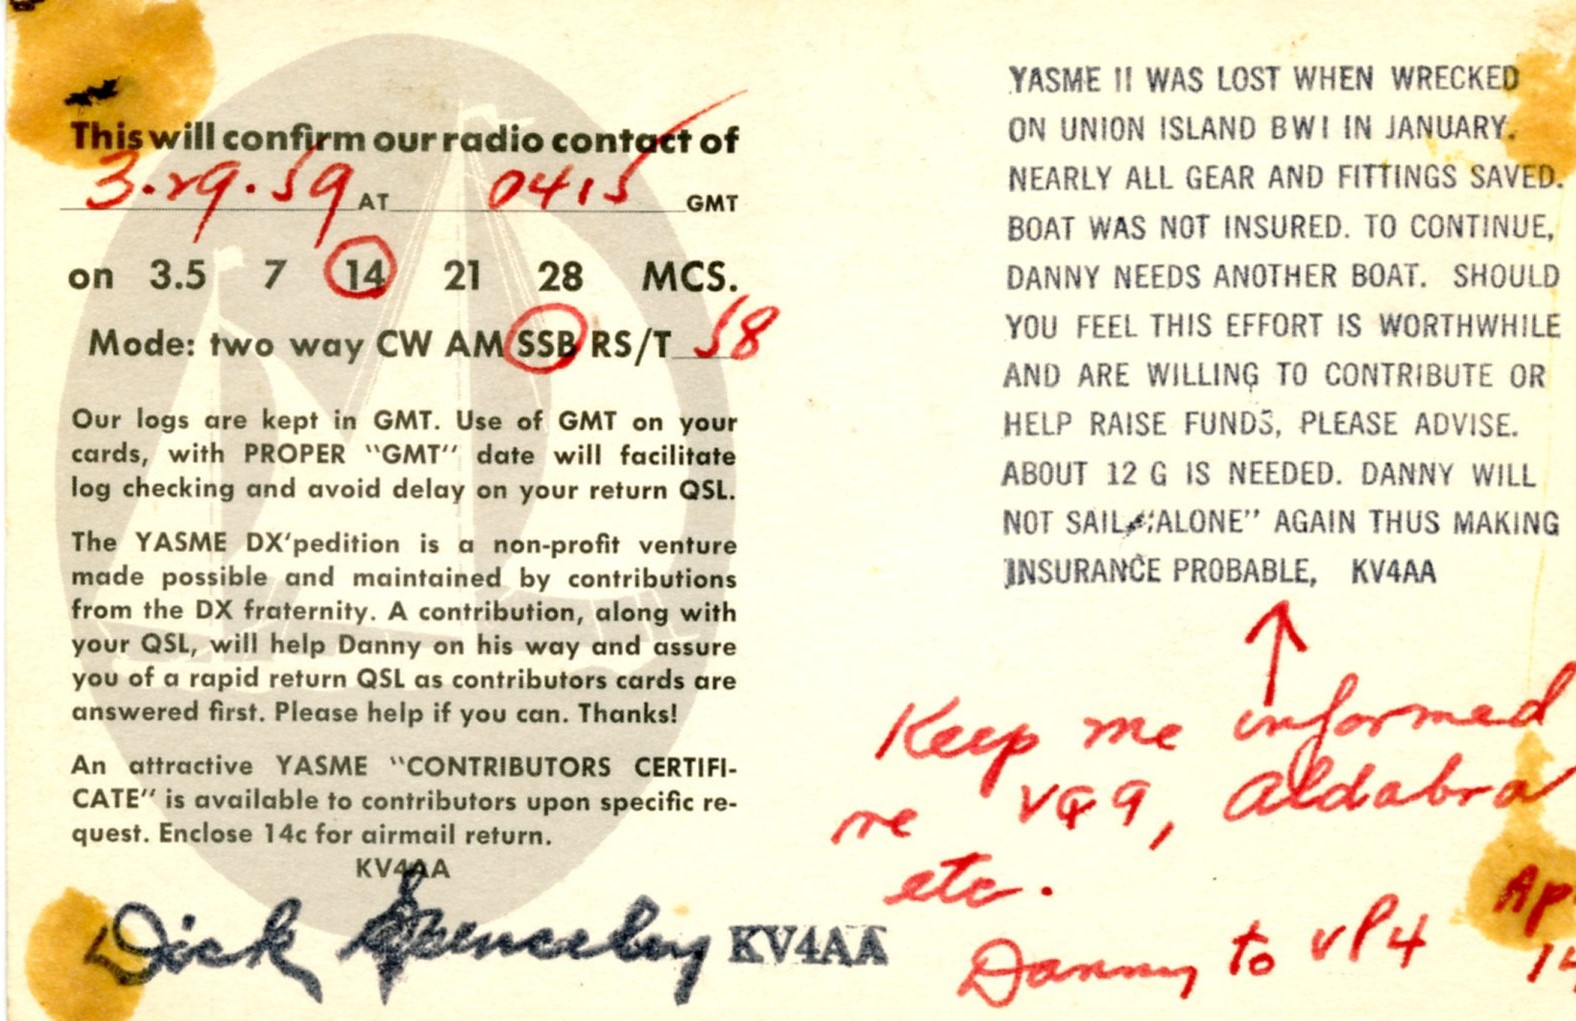 This will confirm our radio contact of
3.29.59 AT 0415 GMT
on 3.5 7 14 21 28 MCS.
Mode: two way CW AM SSB RS/T 58
Our logs are kept in GMT. Use of GMT on your
cards, with PROPER "GMT" date will facilitate
log checking and avoid delay on your return QSL.
The YASME DX'pedition is a non-profit venture
made possible and maintained by contributions
from the DX fraternity. A contribution, along with
your QSL, will help Danny on his way and assure
you of a rapid return QSL as contributors cards are
answered first. Please help if you can. Thanks!
An attractive YASME "CONTRIBUTORS CERTIFI-
CATE" is available to contributors upon specific re-
quest. Enclose 14c for airmail return.
KV4AA
Dick Spenceley KV4AA
YASME II WAS LOST WHEN WRECKED
ON UNION ISLAND BWI IN JANUARY.
NEARLY ALL GEAR AND FITTINGS SAVED.
BOAT WAS NOT INSURED. TO CONTINUE,
DANNY NEEDS ANOTHER BOAT. SHOULD
YOU FEEL THIS EFFORT IS WORTHWHILE
AND ARE WILLING TO CONTRIBUTE OR
HELP RAISE FUNDS, PLEASE ADVISE.
ABOUT 12 G IS NEEDED. DANNY WILL
NOT SAIL "ALONE" AGAIN THUS MAKING
INSURANCE PROBABLE, KV4AA
Keep me informed
re VQ9, Aldabra
etc.
Danny to VP4 Ap
14